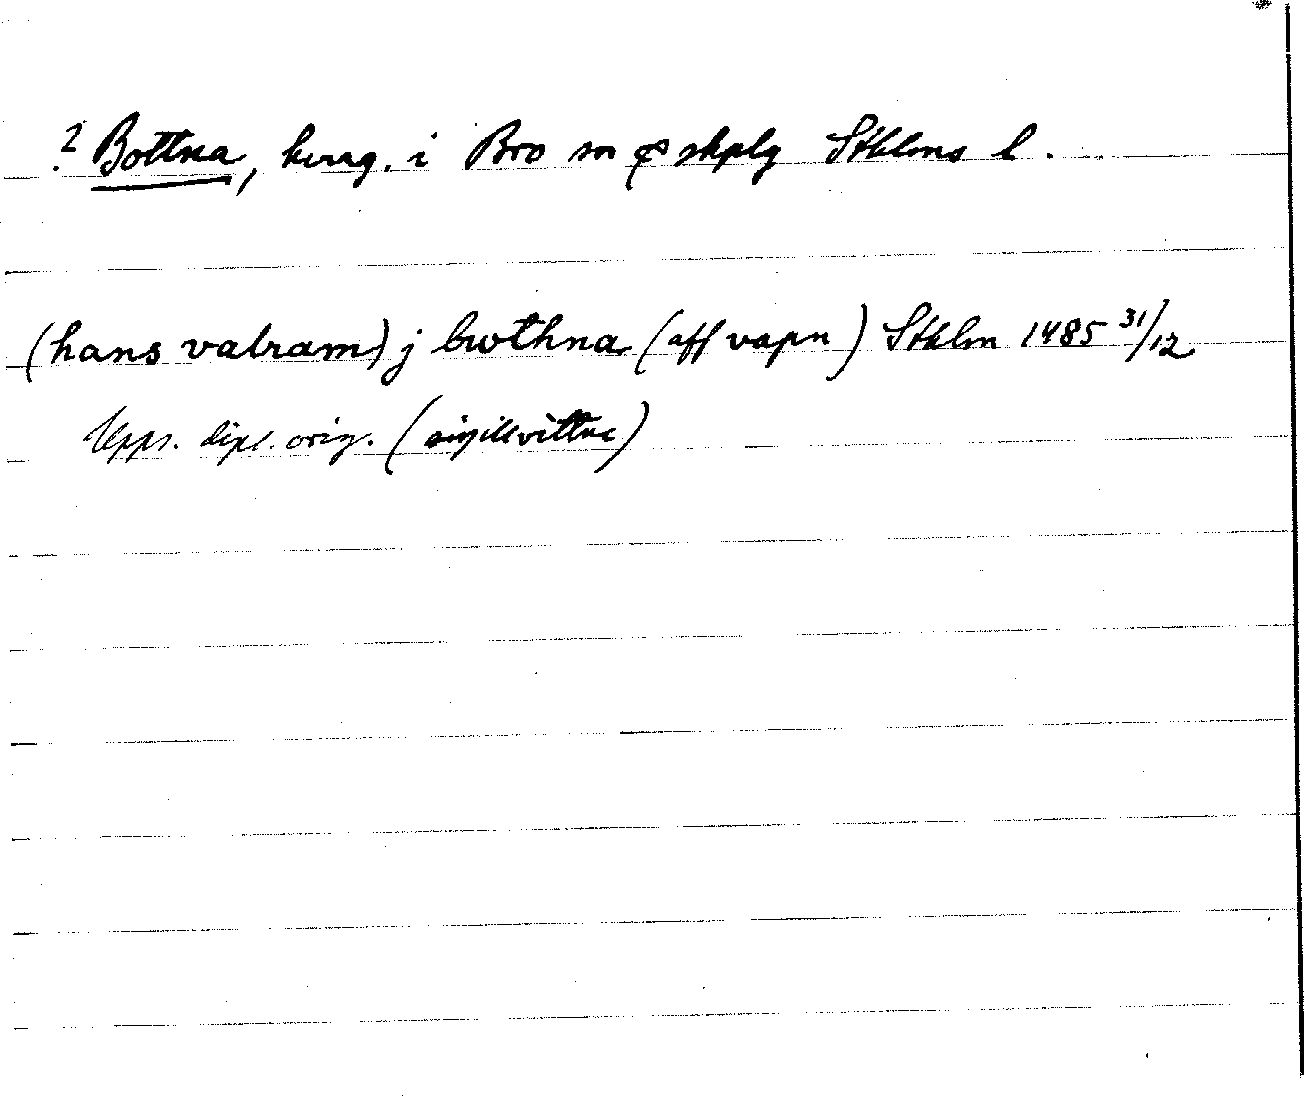 ? Bottna, herrg. i Bro sn o skplg Stklms l.
(hans valram) j bwthna (aff vapn) Stklm 1485 31/12
Upps. dipl. orig. (sigillvittne)